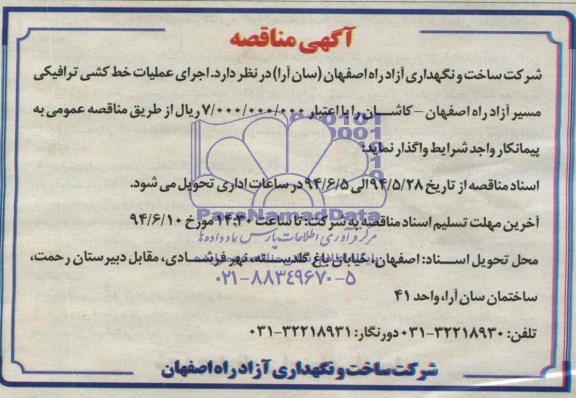 آگهی مناقصه
شرکت ساخت و نگهداری آزاد راه اصفهان (سان آرا) در نظر دارد. اجرای عملیات خط کشی ترافیکی
مسیر آزاد راه اصفهان – کاشان را با اعتبار ۷/۰۰۰/۰۰۰/۰۰۰ ریال از طریق مناقصه عمومی به
پیمانکار واجد شرایط واگذار نماید:
اسناد مناقصه از تاریخ ۹۴/۵/۲۸ الی ۹۴/۶/۵ در ساعات اداری تحویل می شود.
آخرین مهلت تسلیم اسناد مناقصه به شرکت: تا ساعت ۱۴:۳۰ مورخ ۹۴/۶/۱۰
ParsNamadData
مرکز فرآوری اطلاعات پارس نماد داده ها
محل تحویل اسناد: اصفهان، خیابان باغ گلدسته، نهر فرشادی، مقابل دبیرستان رحمت،
۰۲۱-۸۸۳۴۹۶۷۰-۵
ساختمان سان آرا، واحد ۴۱
تلفن: ۳۲۲۱۸۹۳۰-۰۳۱ دورنگار: ۳۲۲۱۸۹۳۱-۰۳۱
شرکت ساخت و نگهداری آزاد راه اصفهان